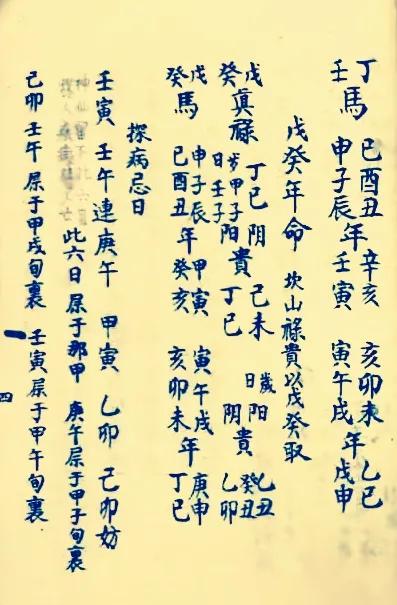 丁壬馬 巳酉丑申子辰年 辛亥壬寅 亥卯未寅午戌年 乙巳戊申
戊癸年命 坎山祿貴以戊癸取
戊癸真祿 丁巳 歲甲子日壬子 陰陽貴 己未丁巳 歲日 陽陰貴 乙丑癸丑乙卯
戊癸馬 申子辰巳酉丑年 甲寅癸亥 寅午戌亥卯未年 庚申丁巳
探病忌日
壬寅 壬午連庚午 甲寅 乙卯 己卯妨
此六日属于那甲 庚午属于甲子旬裏
己卯 壬午 属于甲戌旬裏 壬寅属于甲午旬裏
四